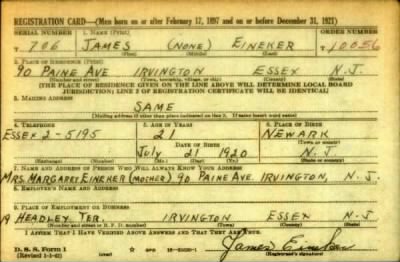 REGISTRATION CARD—(Men born on or after February 17, 1897 and on or before December 31, 1921)
SERIAL NUMBER 1. NAME (Print) ORDER NUMBER
T 706 JAMES (NONE) EINEKER 10056
2. PLACE OF RESIDENCE (Print)
90 PAINE AVE IRVINGTON ESSEX N.J.
(Number and street) (Town, township, village, or city) (County) (State)
[THE PLACE OF RESIDENCE GIVEN ON THE LINE ABOVE WILL DETERMINE LOCAL BOARD
JURISDICTION; LINE 2 OF REGISTRATION CERTIFICATE WILL BE IDENTICAL]
3. MAILING ADDRESS
SAME
[Mailing address if other than place indicated on line 2. If same insert word same]
4. TELEPHONE 5. AGE IN YEARS 6. PLACE OF BIRTH
ESSEX 2-5195 21 NEWARK
DATE OF BIRTH (Town or county)
July 21 1920 N.J.
(Exchange) (Number) (Mo.) (Day) (Yr.) (State or country)
7. NAME AND ADDRESS OF PERSON WHO WILL ALWAYS KNOW YOUR ADDRESS
MRS. MARGARET EINEKER (MOTHER) 90 PAINE AVE. IRVINGTON, N.J.
8. EMPLOYER'S NAME AND ADDRESS
9. PLACE OF EMPLOYMENT OR BUSINESS
19 HEADLEY TER. IRVINGTON ESSEX N.J.
(Number and street or R. F. D. number) (Town) (County) (State)
I AFFIRM THAT I HAVE VERIFIED ABOVE ANSWERS AND THAT THEY ARE TRUE.
D. S. S. Form 1
(Revised 1-1-42) (over)
James Eineker
(Registrant's signature)